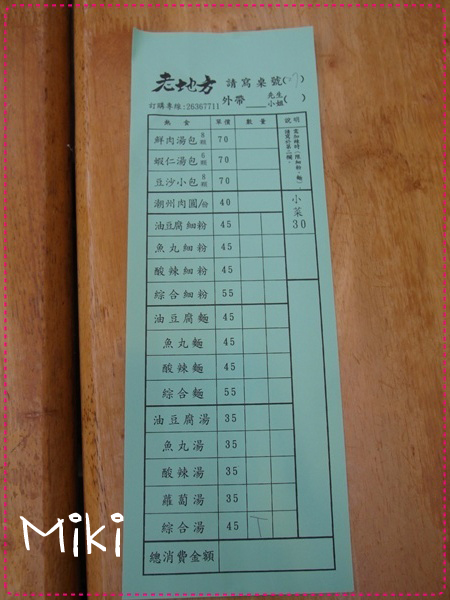 老地方 請寫桌號( 7 )
訂購專線:26367711 外帶____先生小姐( )
熱食 單價 數量 說明
鮮肉湯包8顆 70
蝦仁湯包6顆 70
豆沙小包8顆 70
潮州肉圓/份 40
小菜30
油豆腐細粉 45
魚丸細粉 45
酸辣細粉 45
綜合細粉 55
油豆腐麵 45
魚丸麵 45
酸辣麵 45
綜合麵 55
油豆腐湯 35
魚丸湯 35
酸辣湯 35
蘿蔔湯 35
綜合湯 45
總消費金額
Miki